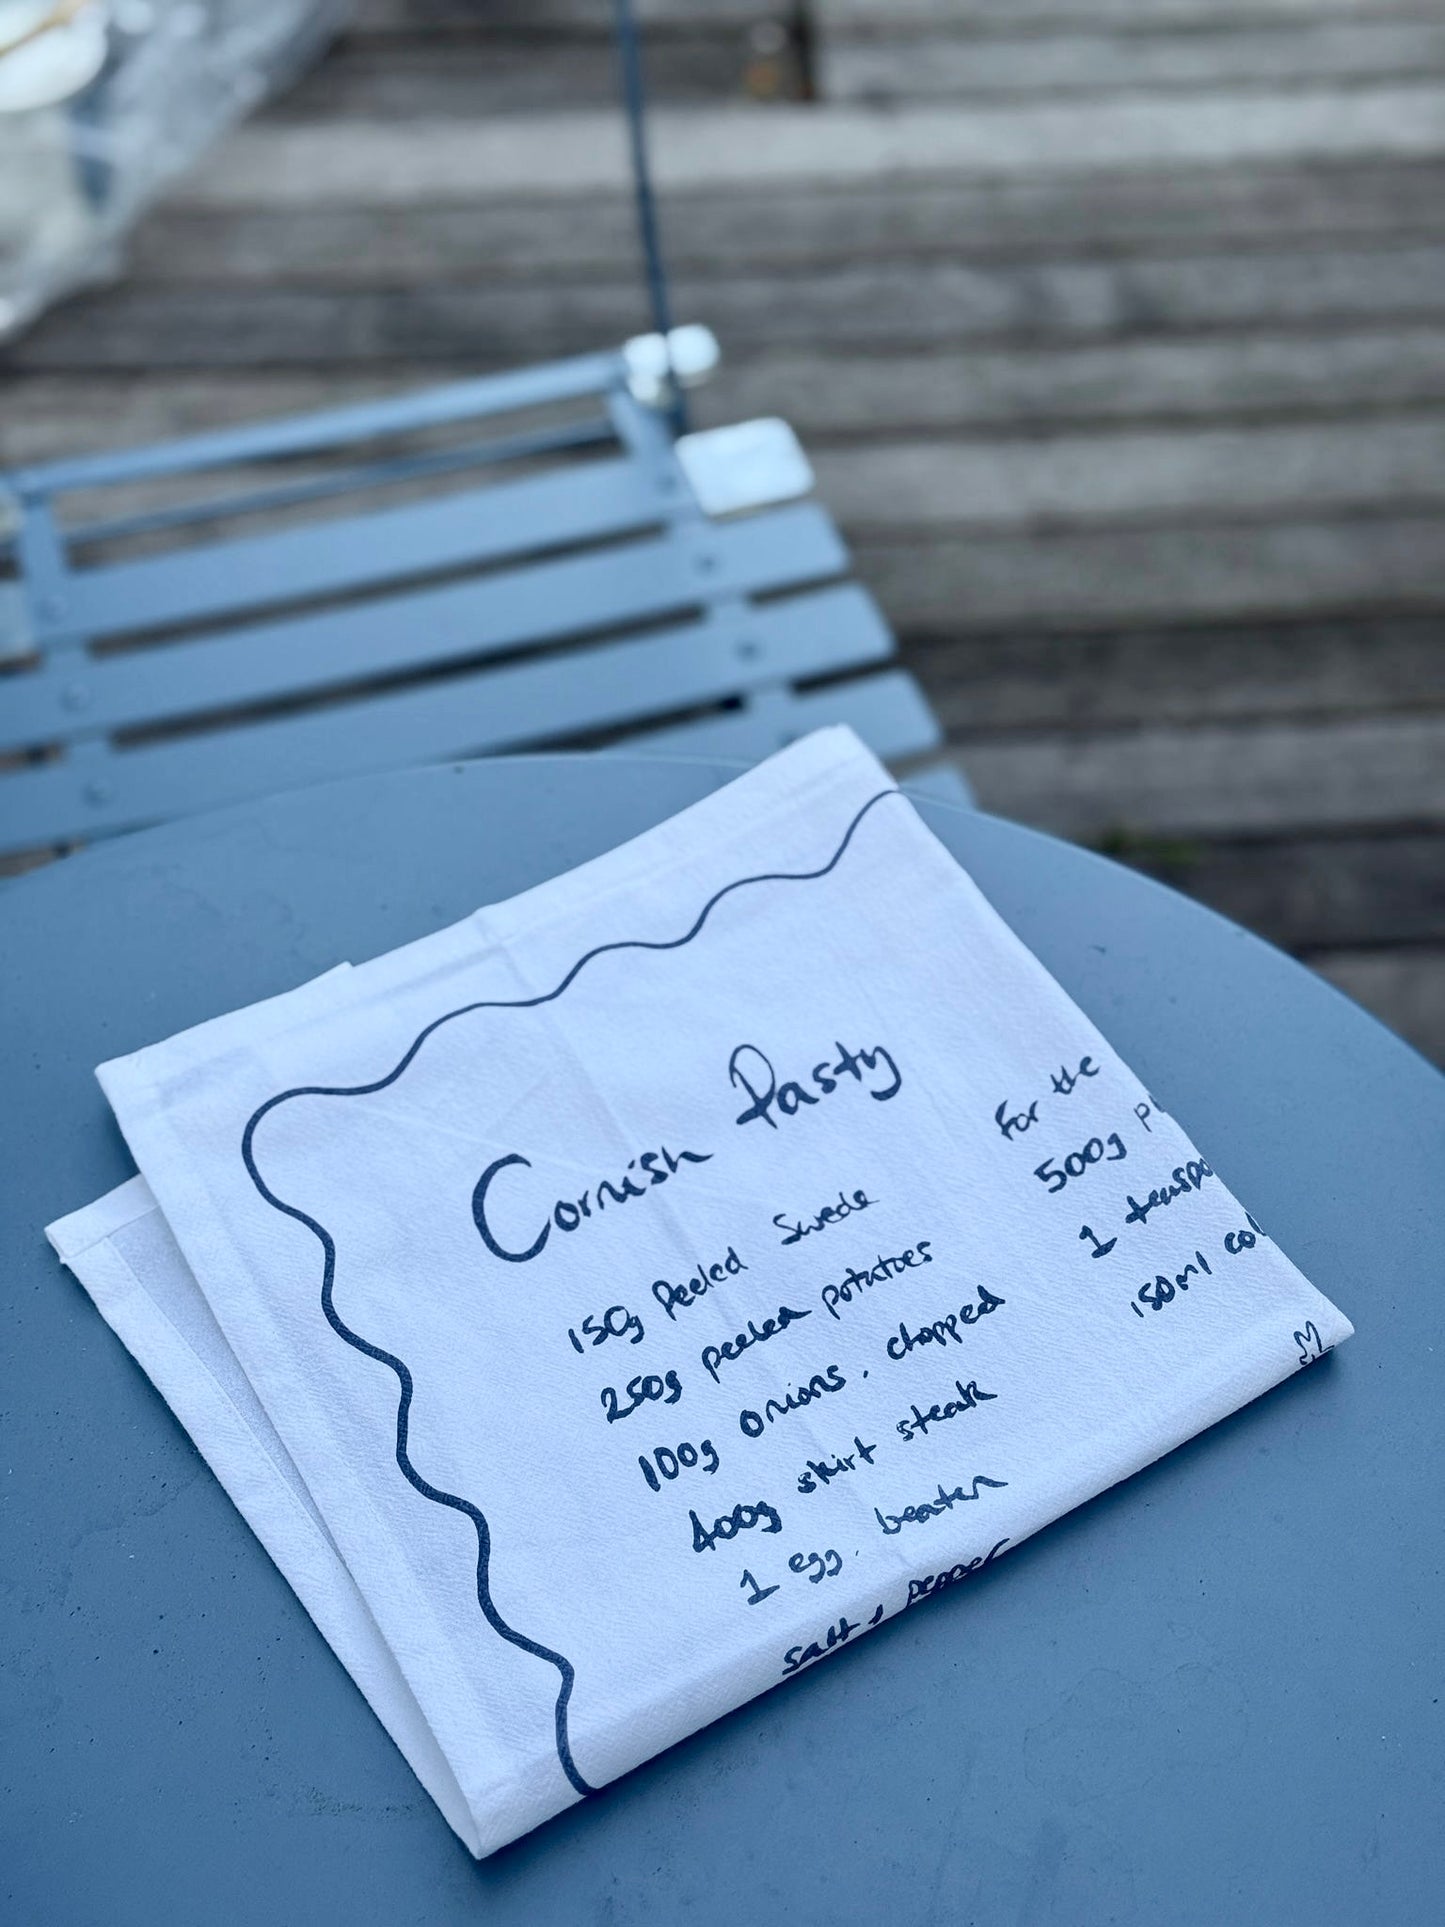 Cornish Pasty
150g Peeled Swede
250g peeled potatoes
100g onions, chopped
400g skirt steak
1 egg, beaten
Salt & pepper
For the
500g
1
150ml